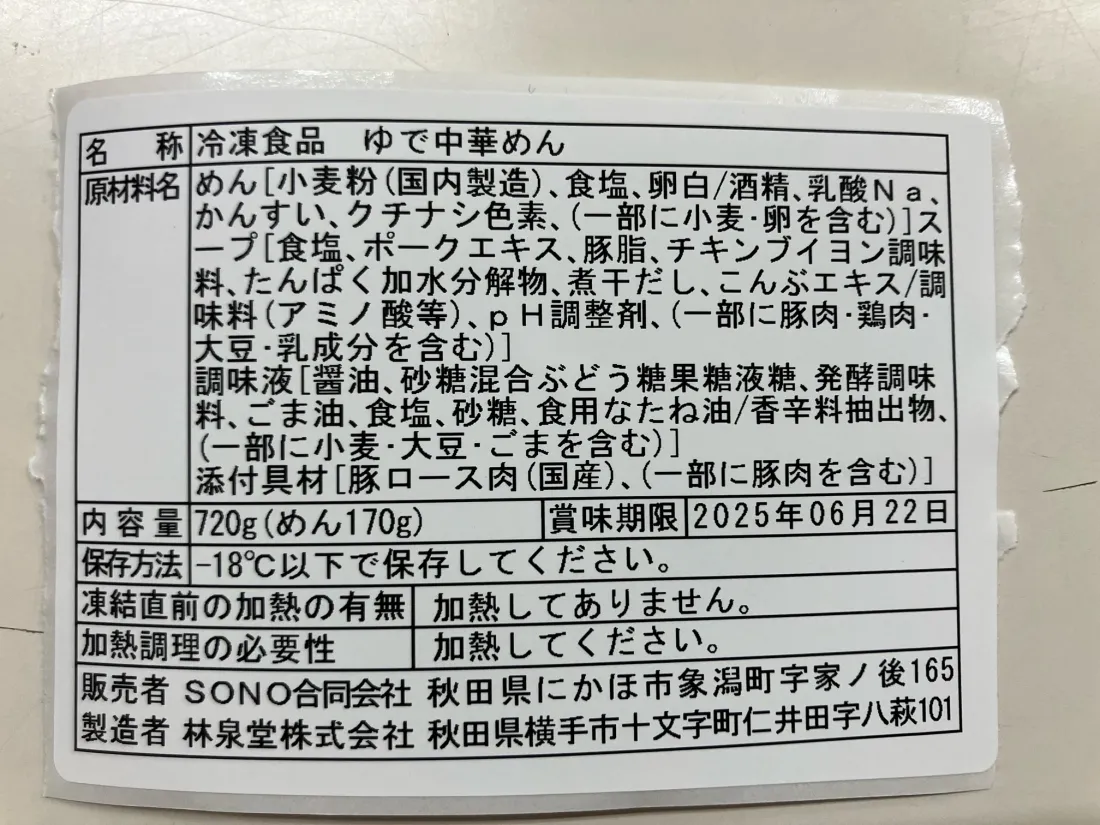 名　称 冷凍食品　ゆで中華めん
原材料名 めん[小麦粉(国内製造)、食塩、卵白/酒精、乳酸Ｎａ、
かんすい、クチナシ色素、(一部に小麦・卵を含む)]ス
ープ[食塩、ポークエキス、豚脂、チキンブイヨン調味
料、たんぱく加水分解物、煮干だし、こんぶエキス/調
味料(アミノ酸等)、ｐＨ調整剤、(一部に豚肉・鶏肉・
大豆・乳成分を含む)]
調味液[醤油、砂糖混合ぶどう糖果糖液糖、発酵調味
料、ごま油、食塩、砂糖、食用なたね油/香辛料抽出物、
(一部に小麦・大豆・ごまを含む)]
添付具材[豚ロース肉(国産)、(一部に豚肉を含む)]
内容量 720g(めん170g) 賞味期限 2025年06月22日
保存方法 -18℃以下で保存してください。
凍結直前の加熱の有無 加熱してありません。
加熱調理の必要性 加熱してください。
販売者 ＳＯＮＯ合同会社 秋田県にかほ市象潟町字家ノ後165
製造者 林泉堂株式会社 秋田県横手市十文字町仁井田字八萩101